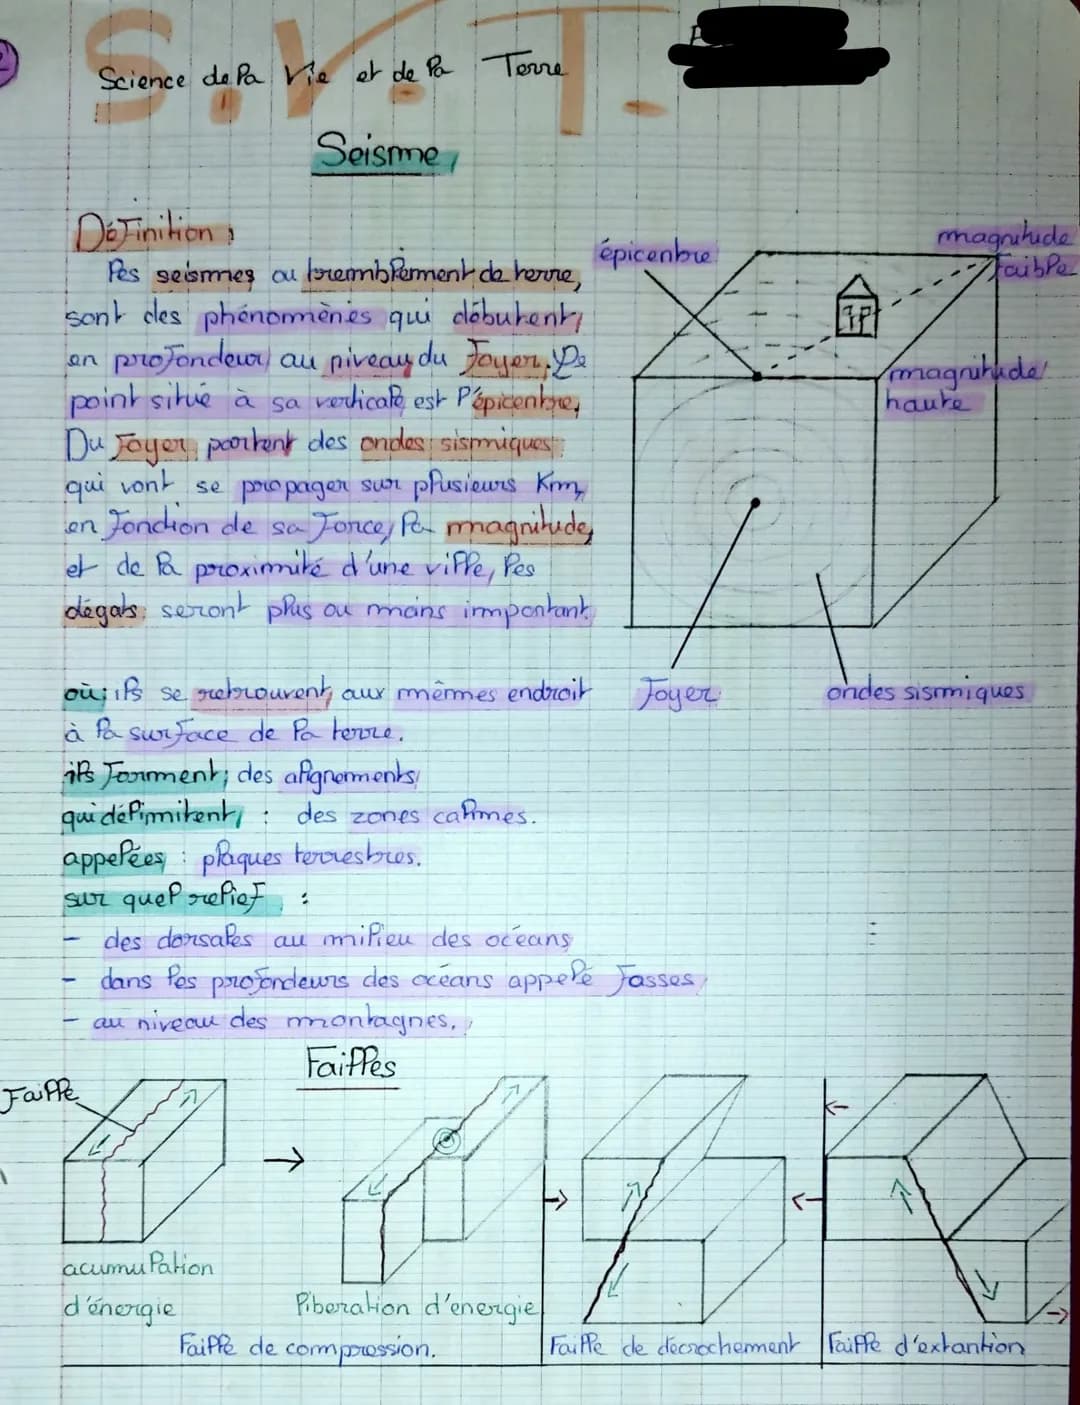 S.V.T.
Science de la Vie et de la Terre
Seisme
Définition :
les seismes ou tremblement de terre,
sont des phénomènes qui débutent
en profondeur au niveau du foyer. Le
point situé à sa verticale est l'épicentre,
Du foyer partent des ondes sismiques
qui vont se propager sur plusieurs Km,
en fonction de sa force, la magnitude,
et de la proximité d'une ville, les
dégats seront plus ou moins important.
épicentre
magnitude
faible
magnitude
haute
foyer
ondes sismiques
où : ils se retrouvent aux mêmes endroit
à la surface de la terre.
ils forment : des alignements
qui délimitent : des zones calmes.
appelées : plaques terrestres.
sur quel relief :
- des dorsales au milieu des océans
- dans les profondeurs des océans appelé fosses
- au niveau des montagnes.
Failles
Faille
acumulation
d'énergie
liberation d'energie
Faille de compression.
Faille de decrochement
Faille d'extantion